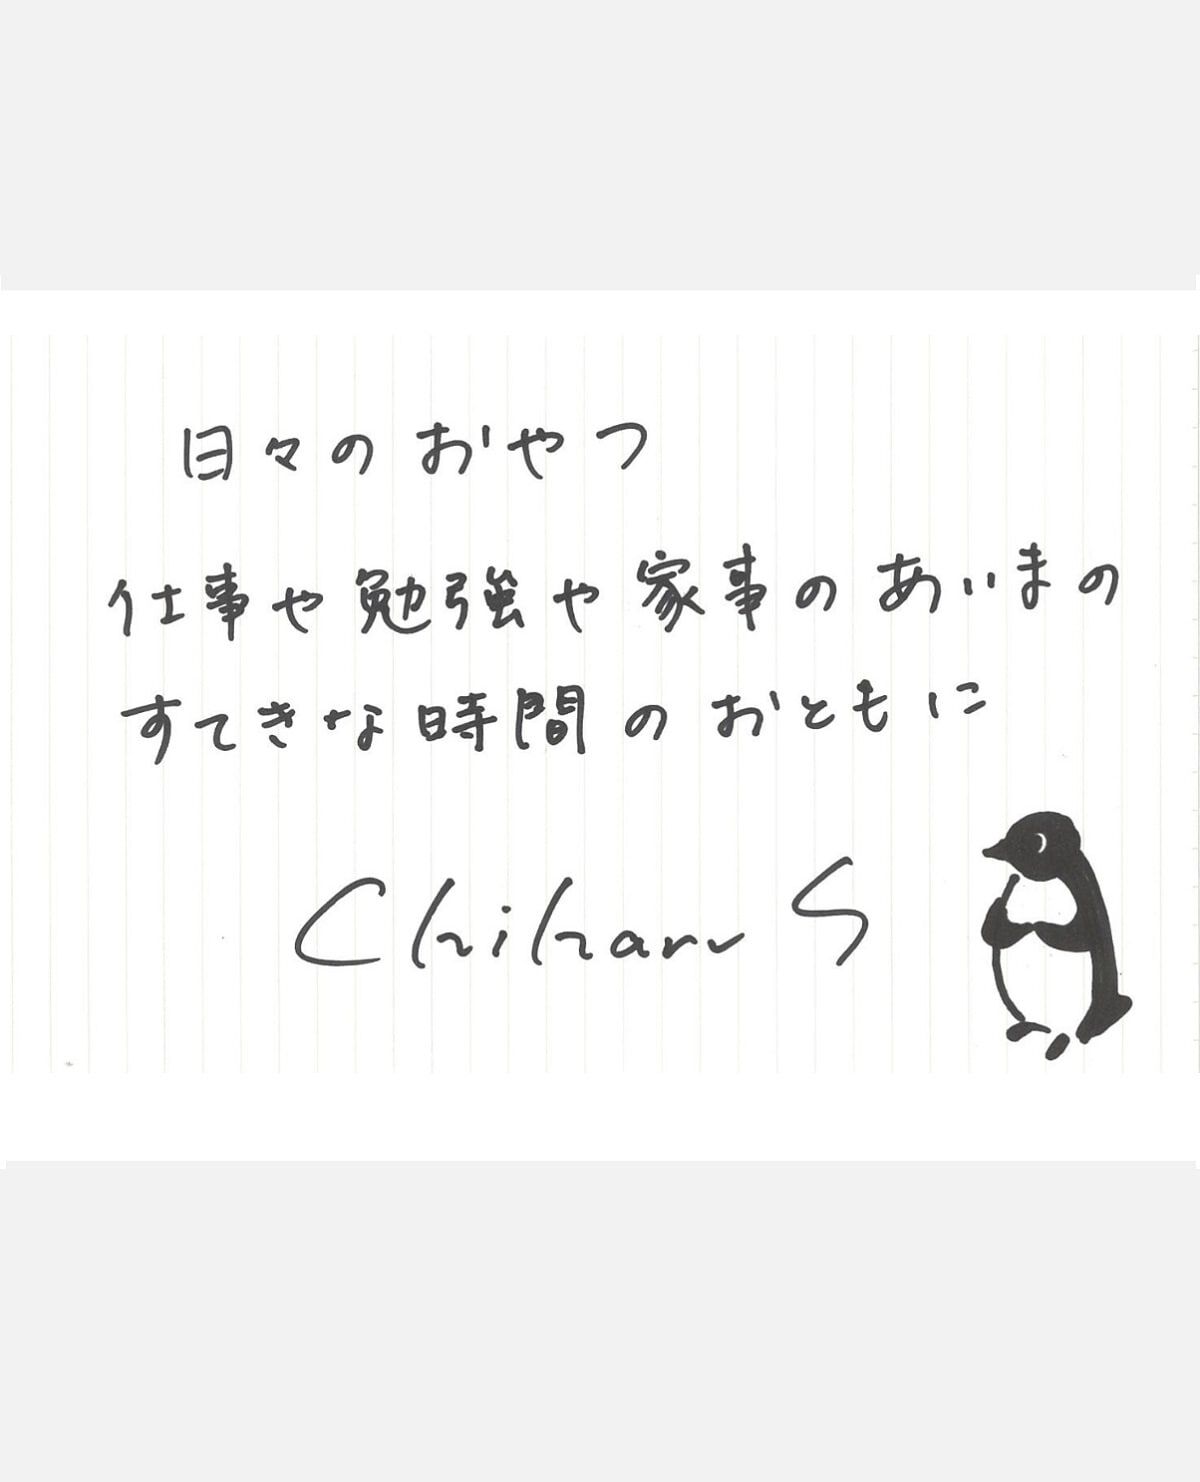 日々のおやつ
仕事や勉強や家事のあいまの
すてきな時間のおともに
Chiharu S